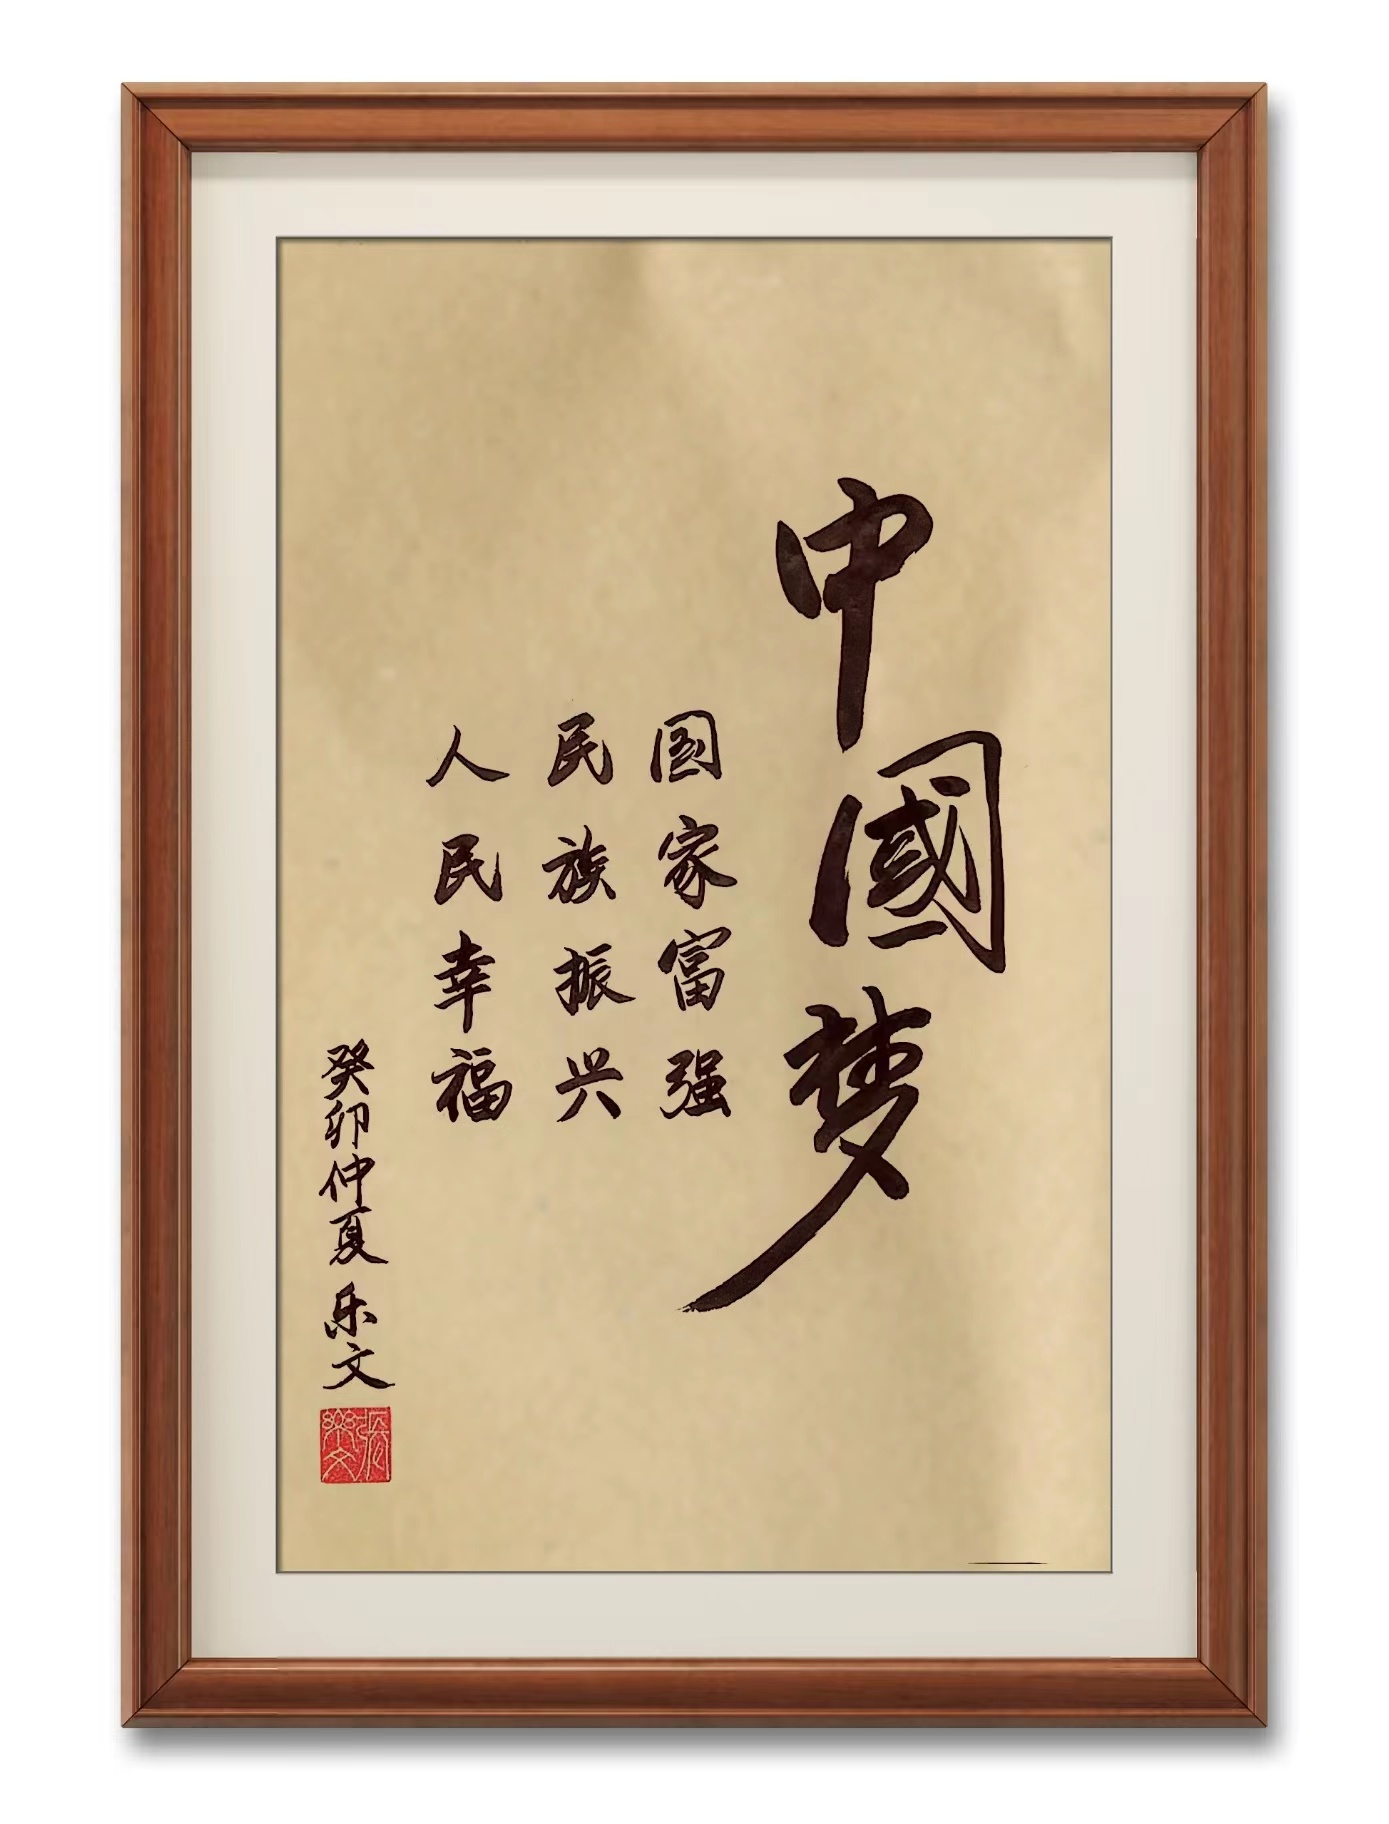 中國梦
国家富强
民族振兴
人民幸福
癸卯仲夏 乐文
张乐文